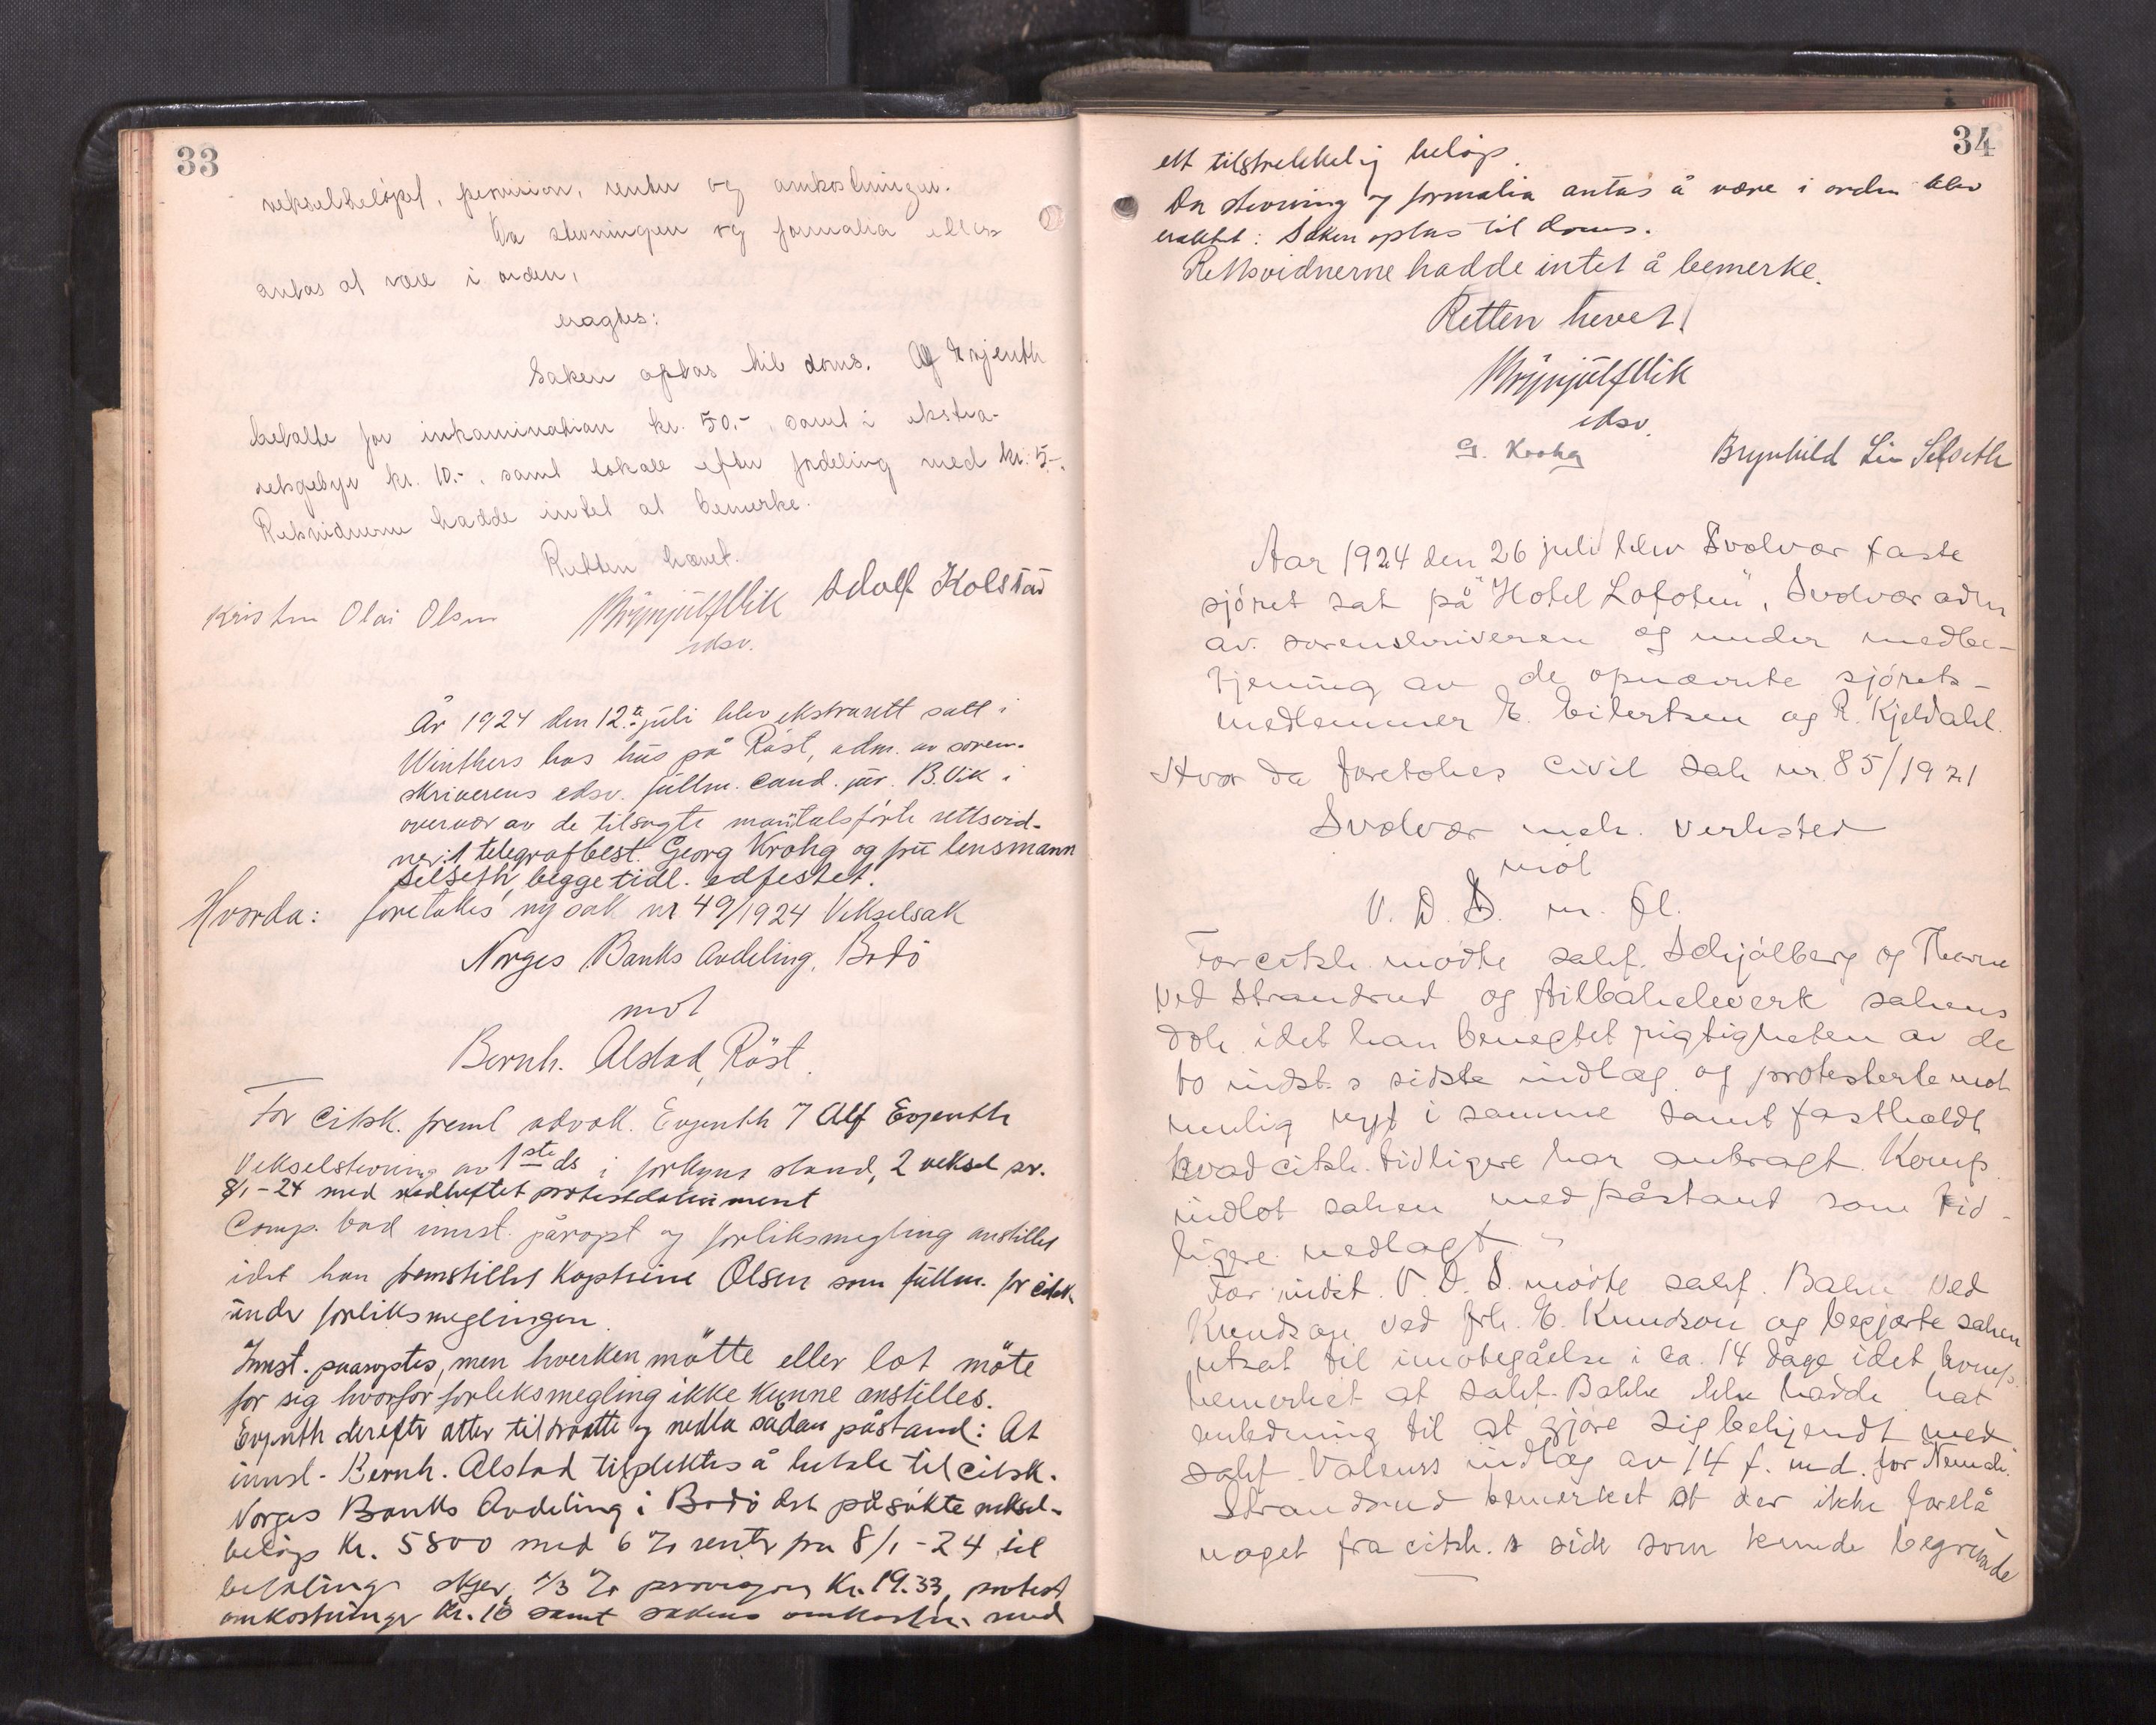 33
vekselbeløpet, provision, renter og omkostninger.
Da stevningen og formalia ellers
antas at være i orden,
eragtes:
Saken optas til doms. Alf Evjenth
betalte for inkamination kr. 50.-, samt i ekstra-
retsgebyr kr. 10.-, samt lokale efter fordeling med kr. 5.-.
Retsvidnerne hadde intet at bemerke.
Retten hævet.
Kristen Olai Olsen Brynjulf Vik Adolf Kolstad
edsv.
År 1924 den 12te juli blev ekstrarett satt i
Winthers hus på Röst, adm. av soren-
skriverens edsv. fullm. cand. jur. B. Vik i
overvær av de tilsagte mantalsförte rettsvid-
ner: telegrafbest. Georg Krohg og fru lensmann
Selseth, begge tidl. edfestet.
Hvorda: foretokes ny sak nr 49/1924 Vekselsak
Norges Banks Avdeling, Bodö
mot
Bernh. Alstad, Röst.
For citsk. freml advok. Evjenth Alf Evjenth
Vekselstevning av 1ste ds i forkynt stand, 2 veksel av
8/1-24 med vedheftet protestdokument
Comp. bad innst. påropt og forliksmegling anstillet
idet han fremstillet Kaptein Olsen som fullm. for citsk
under forliksmeglingen.
Innst. paaroptes, men hverken mötte eller lot möte
for sig hvorfor forliksmegling ikke kunne anstilles.
Evjenth derefter atter tilstede og nedla sådan påstand: At
innst. Bernh. Alstad tilpliktes å betale til citsk.
Norges Banks Avdeling i Bodö det påsökte veksel-
belöp Kr. 5800 med 6 % rente fra 8/1-24 til
betaling skjer, 1/3 % provisjon Kr. 19.33, protest
omkostninger Kr. 16 samt sakens omkostn. med
34
ett tilstrekkelig belöp.
Da stevning og formalia antas å være i orden blev
eraktet: Saken optas til doms.
Rettsvidnerne hadde intet å bemerke.
Retten hevet.
Brynjulf Vik
edsv.
G. Krohg Brynhild Lie Selseth
Aar 1924 den 26 juli blev Svolvær faste
sjóret sat på "Hotel Lofoten", Svolvær adm
av. sorenskriveren og under medbe-
tjening av de opnævnte sjórets-
medlemmer E. Eilertsen og R. Kjeldahl.
Hvor da foretokes civil sak nr. 85/1921
Svolvær mek. verksted
mot
V. D. S. m. fl.
For citsk. mødte sakf. Schjølberg og
ved Strandrud og tilbakeleverk sakens
dok. idet han benegtet rigtigheten av de
to indst.s sidste indlæg og protesterte mot
mulig nyt i samme samt fastholdt
hvad citsk. tidligere har anbragt. Komp.
indlot saken med påstand som tid-
ligere nedlagt.
For indst. V. D. S. mødte sakf. Bakke ved
Knudson ved frk. E. Knudson og begjærte saken
utsat til imøtegåelse i ca. 14 dage idet komp.
bemerket at sakf. Bakke ikke hadde hat
anledning til at gjøre sig bekjendt med
sakf. Valeurs indlæg av 14 f. md. for
Strandrud bemerket at der ikke forelå
noget fra citsk.s side som kunde begrunde